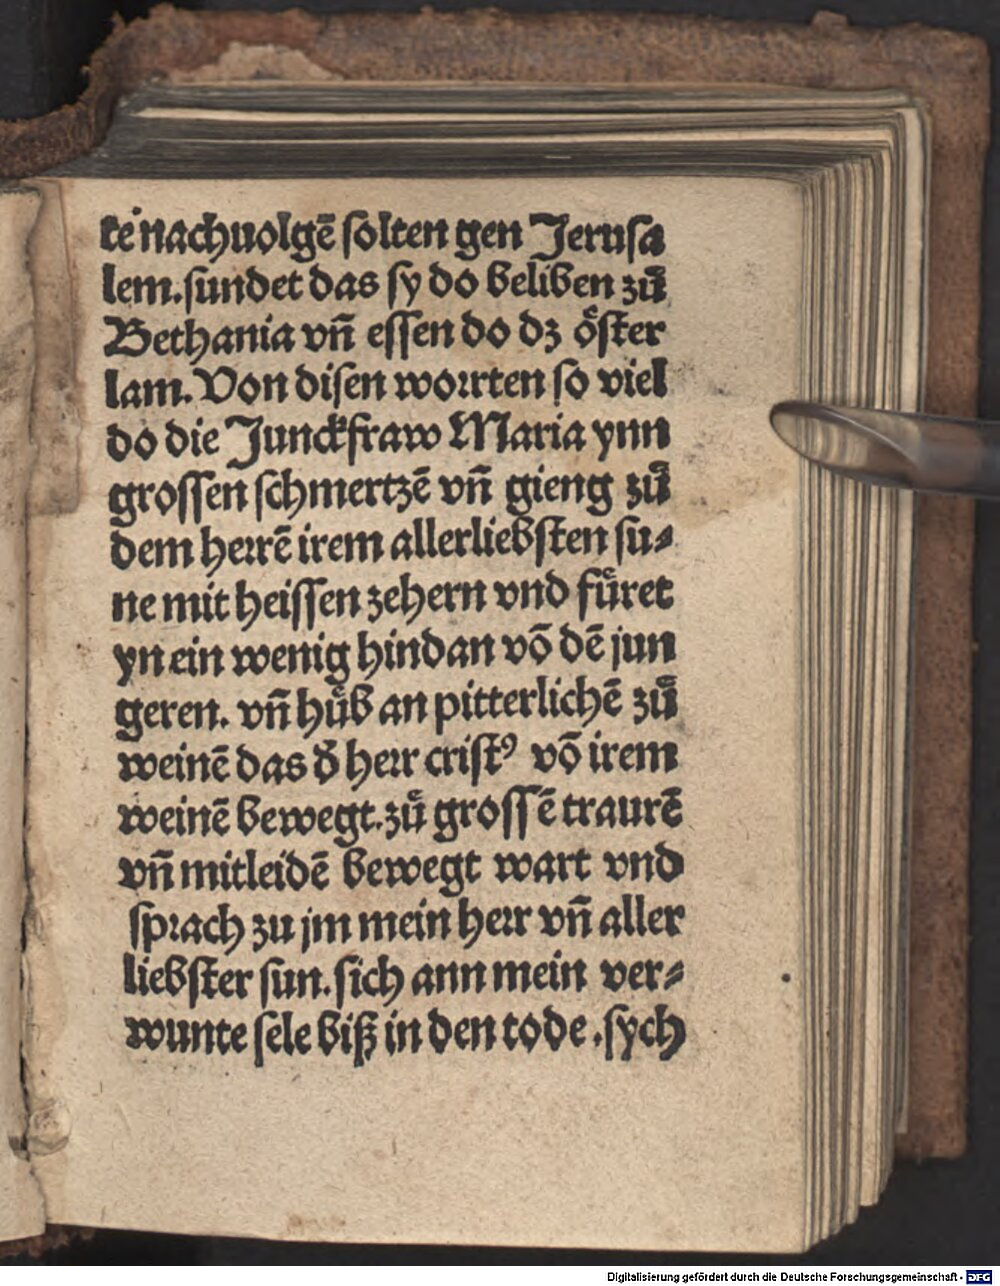 te nachuolgē solten gen Jerusa
lem. sundet das sy do beliben zů
Bethania vñ essen do dz öster
lam. Von disen worrten so viel
do die Junckfraw Maria ynn
grossen schmertzē vñ gieng zů
dem herrē irem allerliebsten su⸗
ne mit heissen zehern vnd fůret
yn ein wenig hindan vō dē jun
geren. vñ hůb an pitterlichē zů
weinē das d̄ herr cristꝰ vō irem
weinē bewegt. zů grossē traurē
vñ mitleidē bewegt wart vnd
sprach zu jm mein herr vñ aller
liebster sun. sich ann mein ver⸗
wunte sele biß in den tode. sych
Digitalisierung gefördert durch die Deutsche Forschungsgemeinschaft - DFG